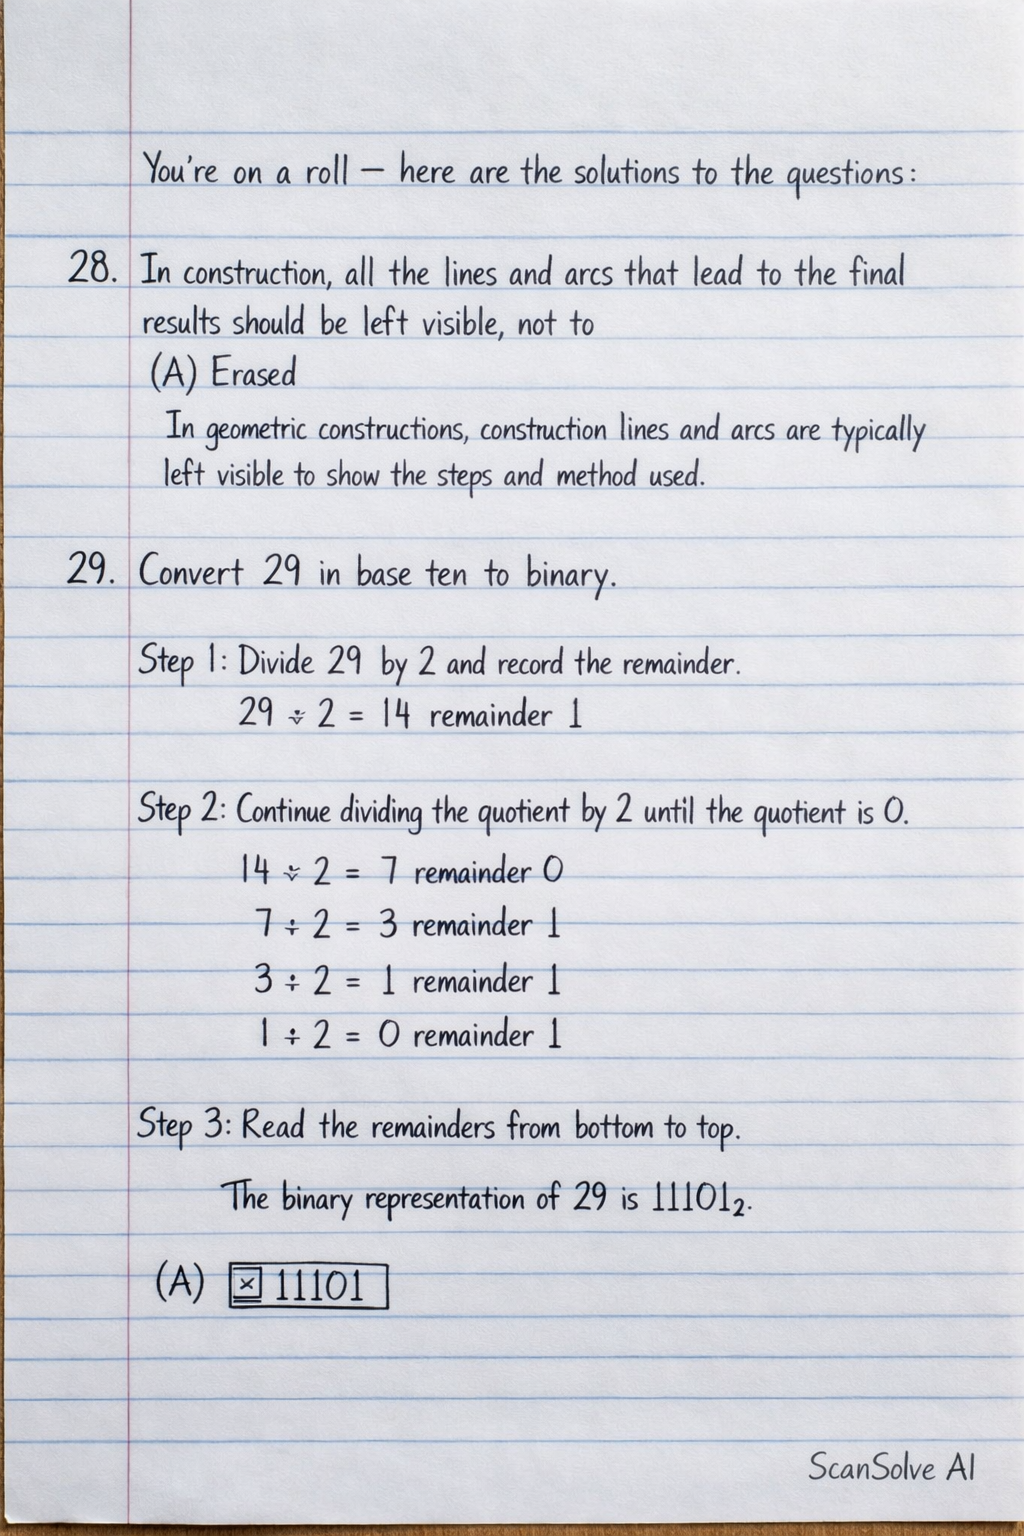 You're on a roll — here are the solutions to the questions:
28. In construction, all the lines and arcs that lead to the final
results should be left visible, not to
(A) Erased
In geometric constructions, construction lines and arcs are typically
left visible to show the steps and method used.
29. Convert 29 in base ten to binary.
Step 1: Divide 29 by 2 and record the remainder.
29 ÷ 2 = 14 remainder 1
Step 2: Continue dividing the quotient by 2 until the quotient is 0.
14 ÷ 2 = 7 remainder 0
7 ÷ 2 = 3 remainder 1
3 ÷ 2 = 1 remainder 1
1 ÷ 2 = 0 remainder 1
Step 3: Read the remainders from bottom to top.
The binary representation of 29 is 11101₂.
(A) ☒ 11101
ScanSolve AI